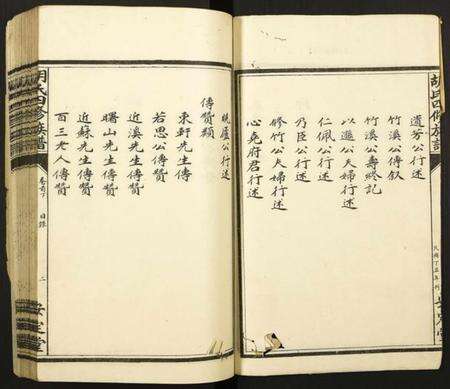 胡氏四修族譜
遺芳公行述
竹溪公傳叙
竹溪公壽終記
以遜公夫婦行述
仁佩公行述
乃臣公行述
修竹公夫婦行述
心堯府君行述
民國丁丑年刊
安定堂
曉廬公行述
傳贊類
東軒先生傳
若思公傳贊
近溪先生傳贊
曙山先生傳贊
近蘇先生傳贊
百三老人傳贊
胡氏四修族譜
目錄
二
安定堂